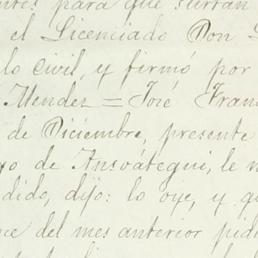 ntes para que surtan
el Licenciado Don
lo civil, y firmó por
Mendez = José Fran
de Diciembre, presente
yo de Ansoategui, le n
dido, dijo: lo oye, y q
ce del mes anterior pidi